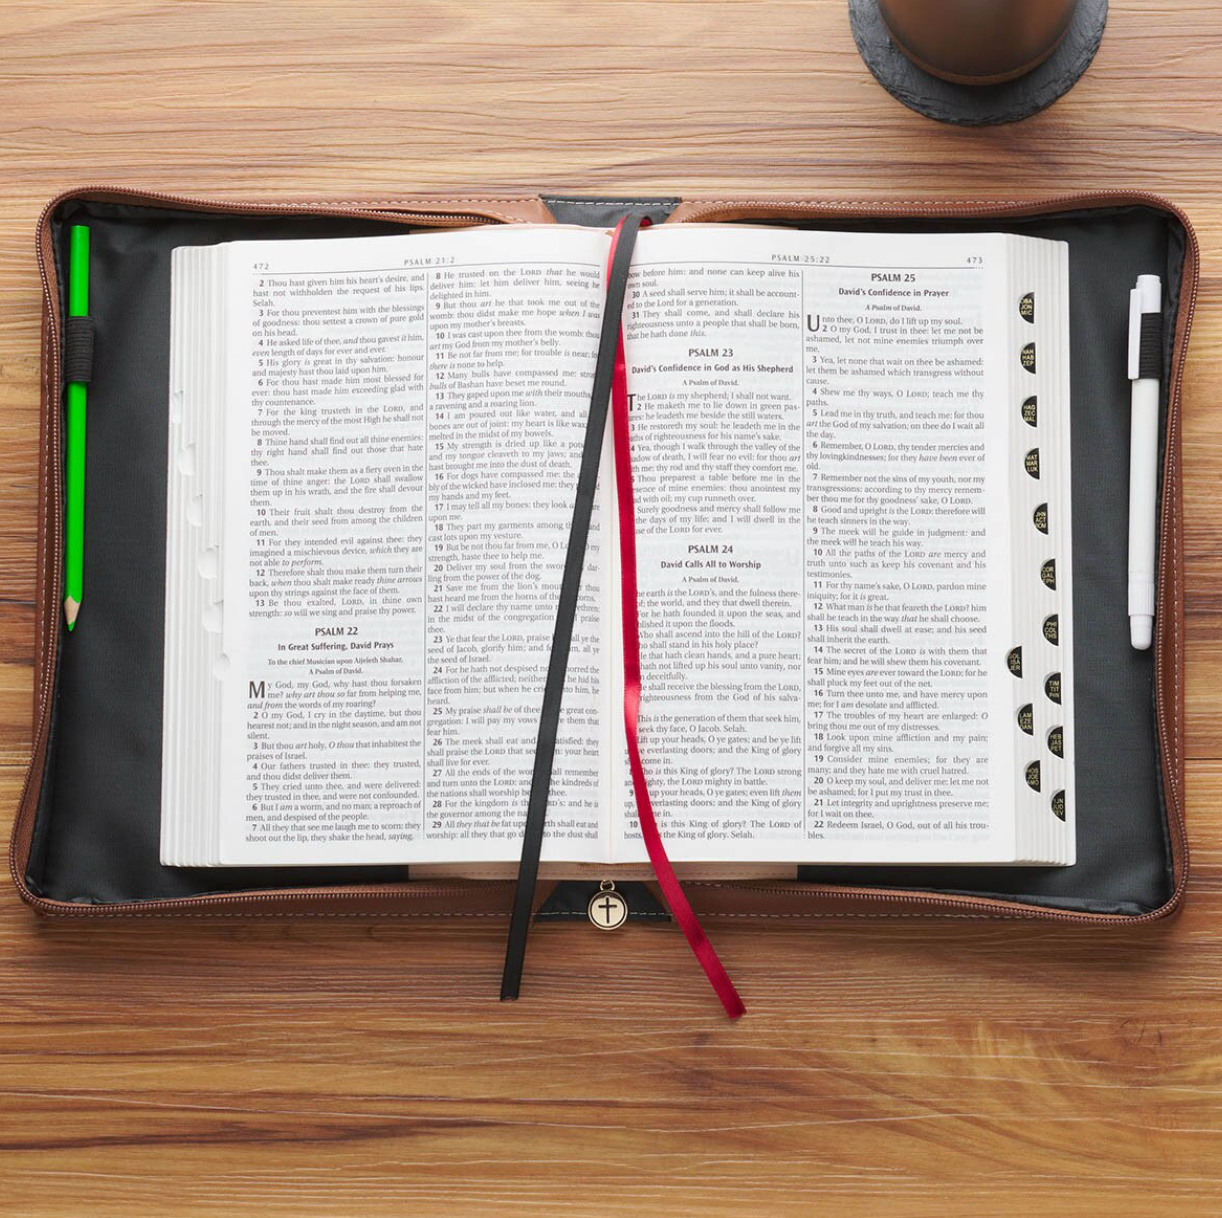 472
PSALM 21:2
2 Thou hast given him his heart's desire, and
hast not withholden the request of his lips.
Selah.
3 For thou preventest him with the blessings
of goodness: thou settest a crown of pure gold
on his head.
4 He asked life of thee, and thou gavest it him,
even length of days for ever and ever.
5 His glory is great in thy salvation: honour
and majesty hast thou laid upon him.
6 For thou hast made him most blessed for
ever: thou hast made him exceeding glad with
thy countenance.
7 For the king trusteth in the LORD, and
through the mercy of the most High he shall not
be moved.
8 Thine hand shall find out all thine enemies:
thy right hand shall find out those that hate
thee.
9 Thou shalt make them as a fiery oven in the
time of thine anger: the LORD shall swallow
them up in his wrath, and the fire shall devour
them.
10 Their fruit shalt thou destroy from the
earth, and their seed from among the children
of men.
11 For they intended evil against thee: they
imagined a mischievous device, which they are
not able to perform.
12 Therefore shalt thou make them turn their
back, when thou shalt make ready thine arrows
upon thy strings against the face of them.
13 Be thou exalted, LORD, in thine own
strength: so will we sing and praise thy power.
PSALM 22
In Great Suffering, David Prays
To the chief Musician upon Aijeleth Shahar,
A Psalm of David.
My God, my God, why hast thou forsaken
me? why art thou so far from helping me,
and from the words of my roaring?
2 O my God, I cry in the daytime, but thou
hearest not; and in the night season, and am not
silent.
3 But thou art holy, O thou that inhabitest the
praises of Israel.
4 Our fathers trusted in thee: they trusted,
and thou didst deliver them.
5 They cried unto thee, and were delivered:
they trusted in thee, and were not confounded.
6 But I am a worm, and no man; a reproach of
men, and despised of the people.
7 All they that see me laugh me to scorn: they
shoot out the lip, they shake the head, saying,
8 He trusted on the LORD that he would
deliver him: let him deliver him, seeing he
delighted in him.
9 But thou art he that took me out of the
womb: thou didst make me hope when I was
upon my mother's breasts.
10 I was cast upon thee from the womb: thou
art my God from my mother's belly.
11 Be not far from me; for trouble is near; for
there is none to help.
12 Many bulls have compassed me: strong
bulls of Bashan have beset me round.
13 They gaped upon me with their mouths, as
a ravening and a roaring lion.
14 I am poured out like water, and all
bones are out of joint: my heart is like wax;
melted in the midst of my bowels.
15 My strength is dried up like a
and my tongue cleaveth to my jaws; and
hast brought me into the dust of death.
16 For dogs have compassed me: the
bly of the wicked have inclosed me: they
my hands and my feet.
17 I may tell all my bones: they look and
upon me.
18 They part my garments among and
cast lots upon my vesture.
19 But be not thou far from me, O my
strength, haste thee to help me.
20 Deliver my soul from the sword; dar-
ling from the power of the dog.
21 Save me from the lion's mouth: thou
hast heard me from the horns of the
22 I will declare thy name unto
in the midst of the congregation praise
thee.
23 Ye that fear the LORD, praise all ye the
seed of Jacob, glorify him; and all ye
the seed of Israel.
24 For he hath not despised nor abhorred the
affliction of the afflicted; neither he hid his
face from him; but when he cried unto him, he
heard.
25 My praise shall be of thee great con-
gregation: I will pay my vows them that
fear him.
26 The meek shall eat and satisfied: they
shall praise the LORD that seek your heart
shall live for ever.
27 All the ends of the world shall remember
and turn unto the LORD: and the kindreds of
the nations shall worship before thee.
28 For the kingdom is the LORD's: and he is
the governor among the
29 All they that be fat upon shall eat and
worship: all they that go to the dust shall
PSALM 25:22
473
bow before him: and none can keep alive his
own soul.
30 A seed shall serve him; it shall be account-
ed to the Lord for a generation.
31 They shall come, and shall declare his
righteousness unto a people that shall be born,
that he hath done this.
PSALM 23
David's Confidence in God as His Shepherd
A Psalm of David.
The LORD is my shepherd; I shall not want.
2 He maketh me to lie down in green pas-
tures: he leadeth me beside the still waters.
3 He restoreth my soul: he leadeth me in the
paths of righteousness for his name's sake.
4 Yea, though I walk through the valley of the
shadow of death, I will fear no evil: for thou art
with me; thy rod and thy staff they comfort me.
Thou preparest a table before me in the
presence of mine enemies: thou anointest my
head with oil; my cup runneth over.
Surely goodness and mercy shall follow me
the days of my life: and I will dwell in the
house of the LORD for ever.
PSALM 24
David Calls All to Worship
A Psalm of David.
The earth is the LORD's, and the fulness there-
of; the world, and they that dwell therein.
For he hath founded it upon the seas, and
established it upon the floods.
Who shall ascend into the hill of the LORD?
who shall stand in his holy place?
He that hath clean hands, and a pure heart;
hath not lifted up his soul unto vanity, nor
deceitfully.
He shall receive the blessing from the LORD,
righteousness from the God of his salva-
This is the generation of them that seek him,
seek thy face, O Jacob. Selah.
Lift up your heads, O ye gates; and be ye lift
everlasting doors; and the King of glory
come in.
Who is this King of glory? The LORD strong
mighty, the LORD mighty in battle.
9 up your heads, O ye gates; even lift them
up, everlasting doors; and the King of glory
shall come in.
10 is this King of glory? The LORD of
hosts, the King of glory. Selah.
PSALM 25
David's Confidence in Prayer
A Psalm of David.
Unto thee, O LORD, do I lift up my soul.
2 O my God, I trust in thee: let me not be
ashamed, let not mine enemies triumph over
me.
3 Yea, let none that wait on thee be ashamed:
let them be ashamed which transgress without
cause.
4 Shew me thy ways, O LORD; teach me thy
paths.
5 Lead me in thy truth, and teach me: for thou
art the God of my salvation; on thee do I wait all
the day.
6 Remember, O LORD, thy tender mercies and
thy lovingkindnesses; for they have been ever of
old.
7 Remember not the sins of my youth, nor my
transgressions: according to thy mercy remem-
ber thou me for thy goodness' sake, O LORD.
8 Good and upright is the LORD: therefore will
he teach sinners in the way.
9 The meek will he guide in judgment: and
the meek will he teach his way.
10 All the paths of the LORD are mercy and
truth unto such as keep his covenant and his
testimonies.
11 For thy name's sake, O LORD, pardon mine
iniquity; for it is great.
12 What man is he that feareth the LORD? him
shall he teach in the way that he shall choose.
13 His soul shall dwell at ease; and his seed
shall inherit the earth.
14 The secret of the LORD is with them that
fear him; and he will shew them his covenant.
15 Mine eyes are ever toward the LORD; for he
shall pluck my feet out of the net.
16 Turn thee unto me, and have mercy upon
me; for I am desolate and afflicted.
17 The troubles of my heart are enlarged: O
bring thou me out of my distresses.
18 Look upon mine affliction and my pain;
and forgive all my sins.
19 Consider mine enemies; for they are
many; and they hate me with cruel hatred.
20 O keep my soul, and deliver me: let me not
be ashamed; for I put my trust in thee.
21 Let integrity and uprightness preserve me;
for I wait on thee.
22 Redeem Israel, O God, out of all his trou-
bles.
OBA
JON
MIC
NAH
HAB
ZEP
HAG
ZEC
MAL
MAT
MAR
LUK
JHN
ACT
ROM
COR
GAL
EPH
PHI
COL
THS
SOL
ISA
JER
TIM
TIT
PHN
LAM
EZE
DAN
HEB
JAS
PET
HOS
JOE
AMO
1JN
JUD
REV